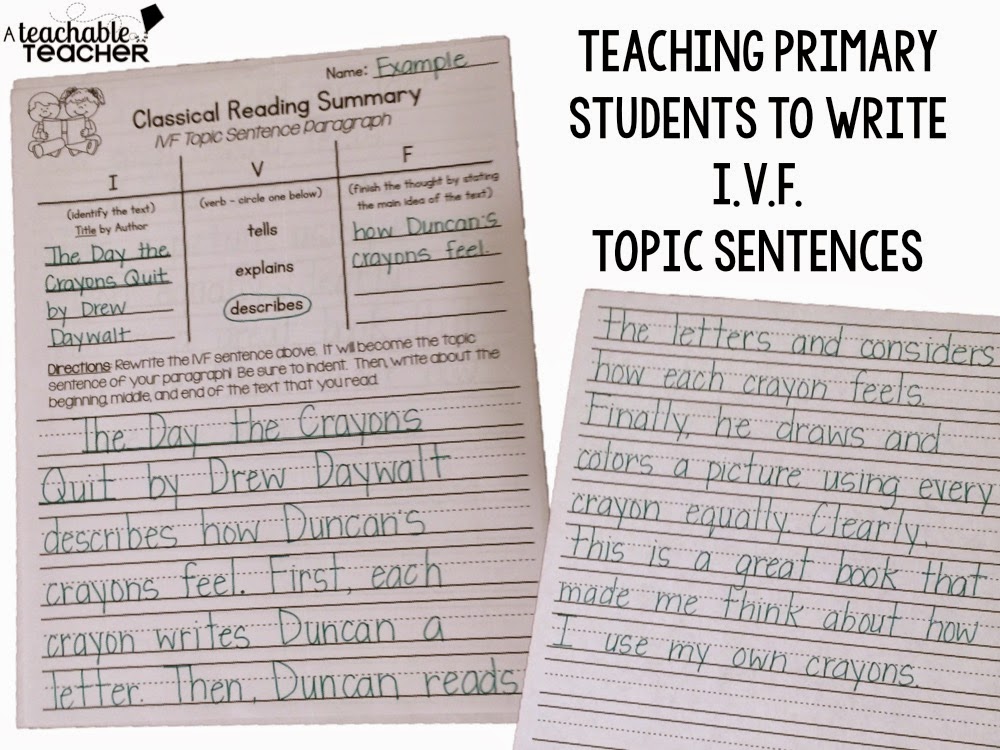 A teachable
TEACHER
Name: Example
Classical Reading Summary
IVF Topic Sentence Paragraph
I
(identify the text)
Title by Author
The Day the
Crayons Quit
by Drew
Daywalt
V
(verb - circle one below)
tells
explains
describes
F
(finish the thought by stating
the main idea of the text)
how Duncan's
crayons feel.
Directions: Rewrite the IVF sentence above. It will become the topic
sentence of your paragraph! Be sure to indent. Then, write about the
beginning, middle, and end of the text that you read.
The Day the Crayons
Quit by Drew Daywalt
describes how Duncan's
crayons feel. First, each
crayon writes Duncan a
letter. Then, Duncan reads
TEACHING PRIMARY
STUDENTS TO WRITE
I.V.F.
TOPIC SENTENCES
the letters and considers
how each crayon feels.
Finally, he draws and
colors a picture using every
crayon equally. Clearly,
this is a great book that
made me think about how
I use my own crayons.